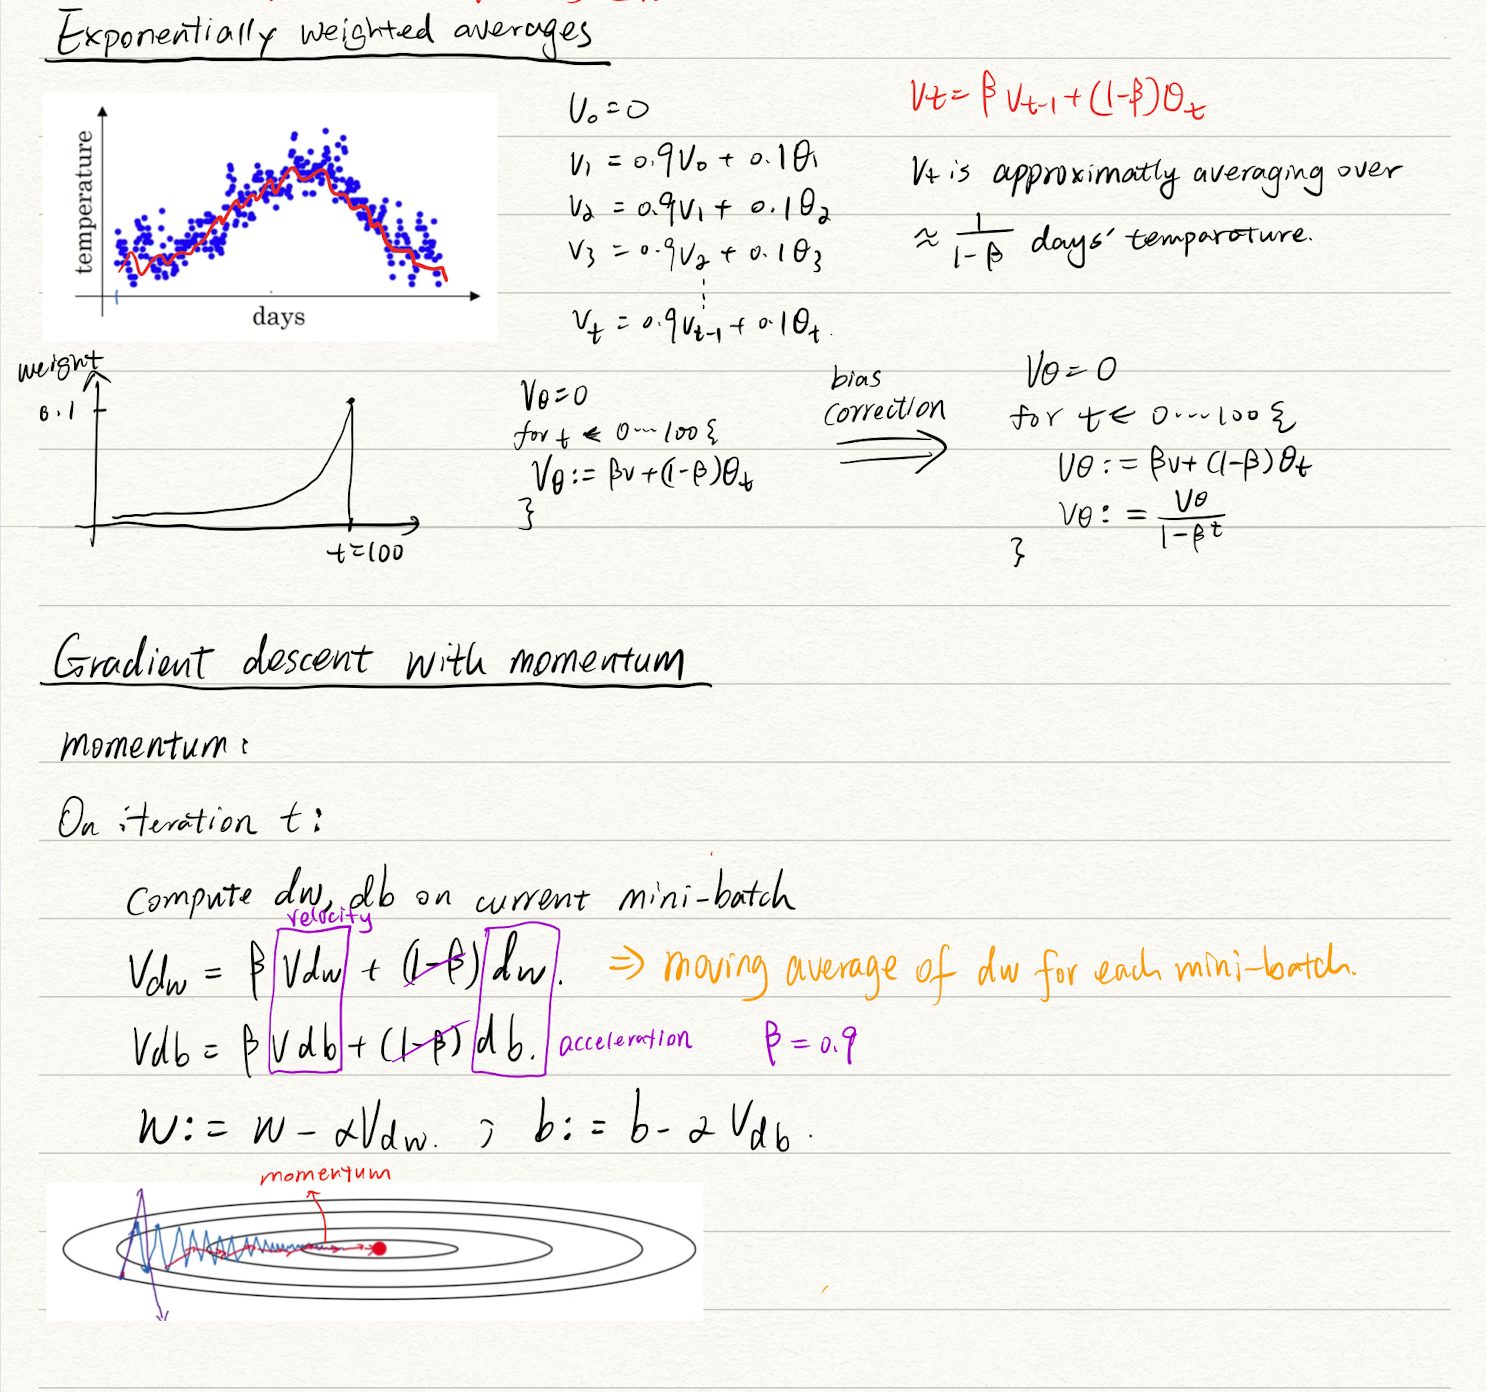 Exponentially weighted averages
temperature
days
V₀ = 0
V₁ = 0.9V₀ + 0.1θ₁
V₂ = 0.9V₁ + 0.1θ₂
V₃ = 0.9V₂ + 0.1θ₃
⋮
Vt = 0.9Vt-1 + 0.1θt.
Vt = βVt-1 + (1-β)θt
Vt is approximatly averaging over
≈ 1/(1-β) days' temparature.
weight
0.1
t=100
Vθ=0
for t ← 0...100 {
Vθ := βv + (1-β)θt
}
bias
correction
⇒
Vθ = 0
for t ← 0...100 {
Vθ := βv + (1-β)θt
Vθ := Vθ/(1-β^t)
}
Gradient descent with momentum
momentum:
On iteration t:
Compute dw, db on current mini-batch
velocity
Vdw = β Vdw + (1-β) dw. ⇒ moving average of dw for each mini-batch.
Vdb = β Vdb + (1-β) db. acceleration β = 0.9
w := w - αVdw. ; b := b - αVdb.
momentum